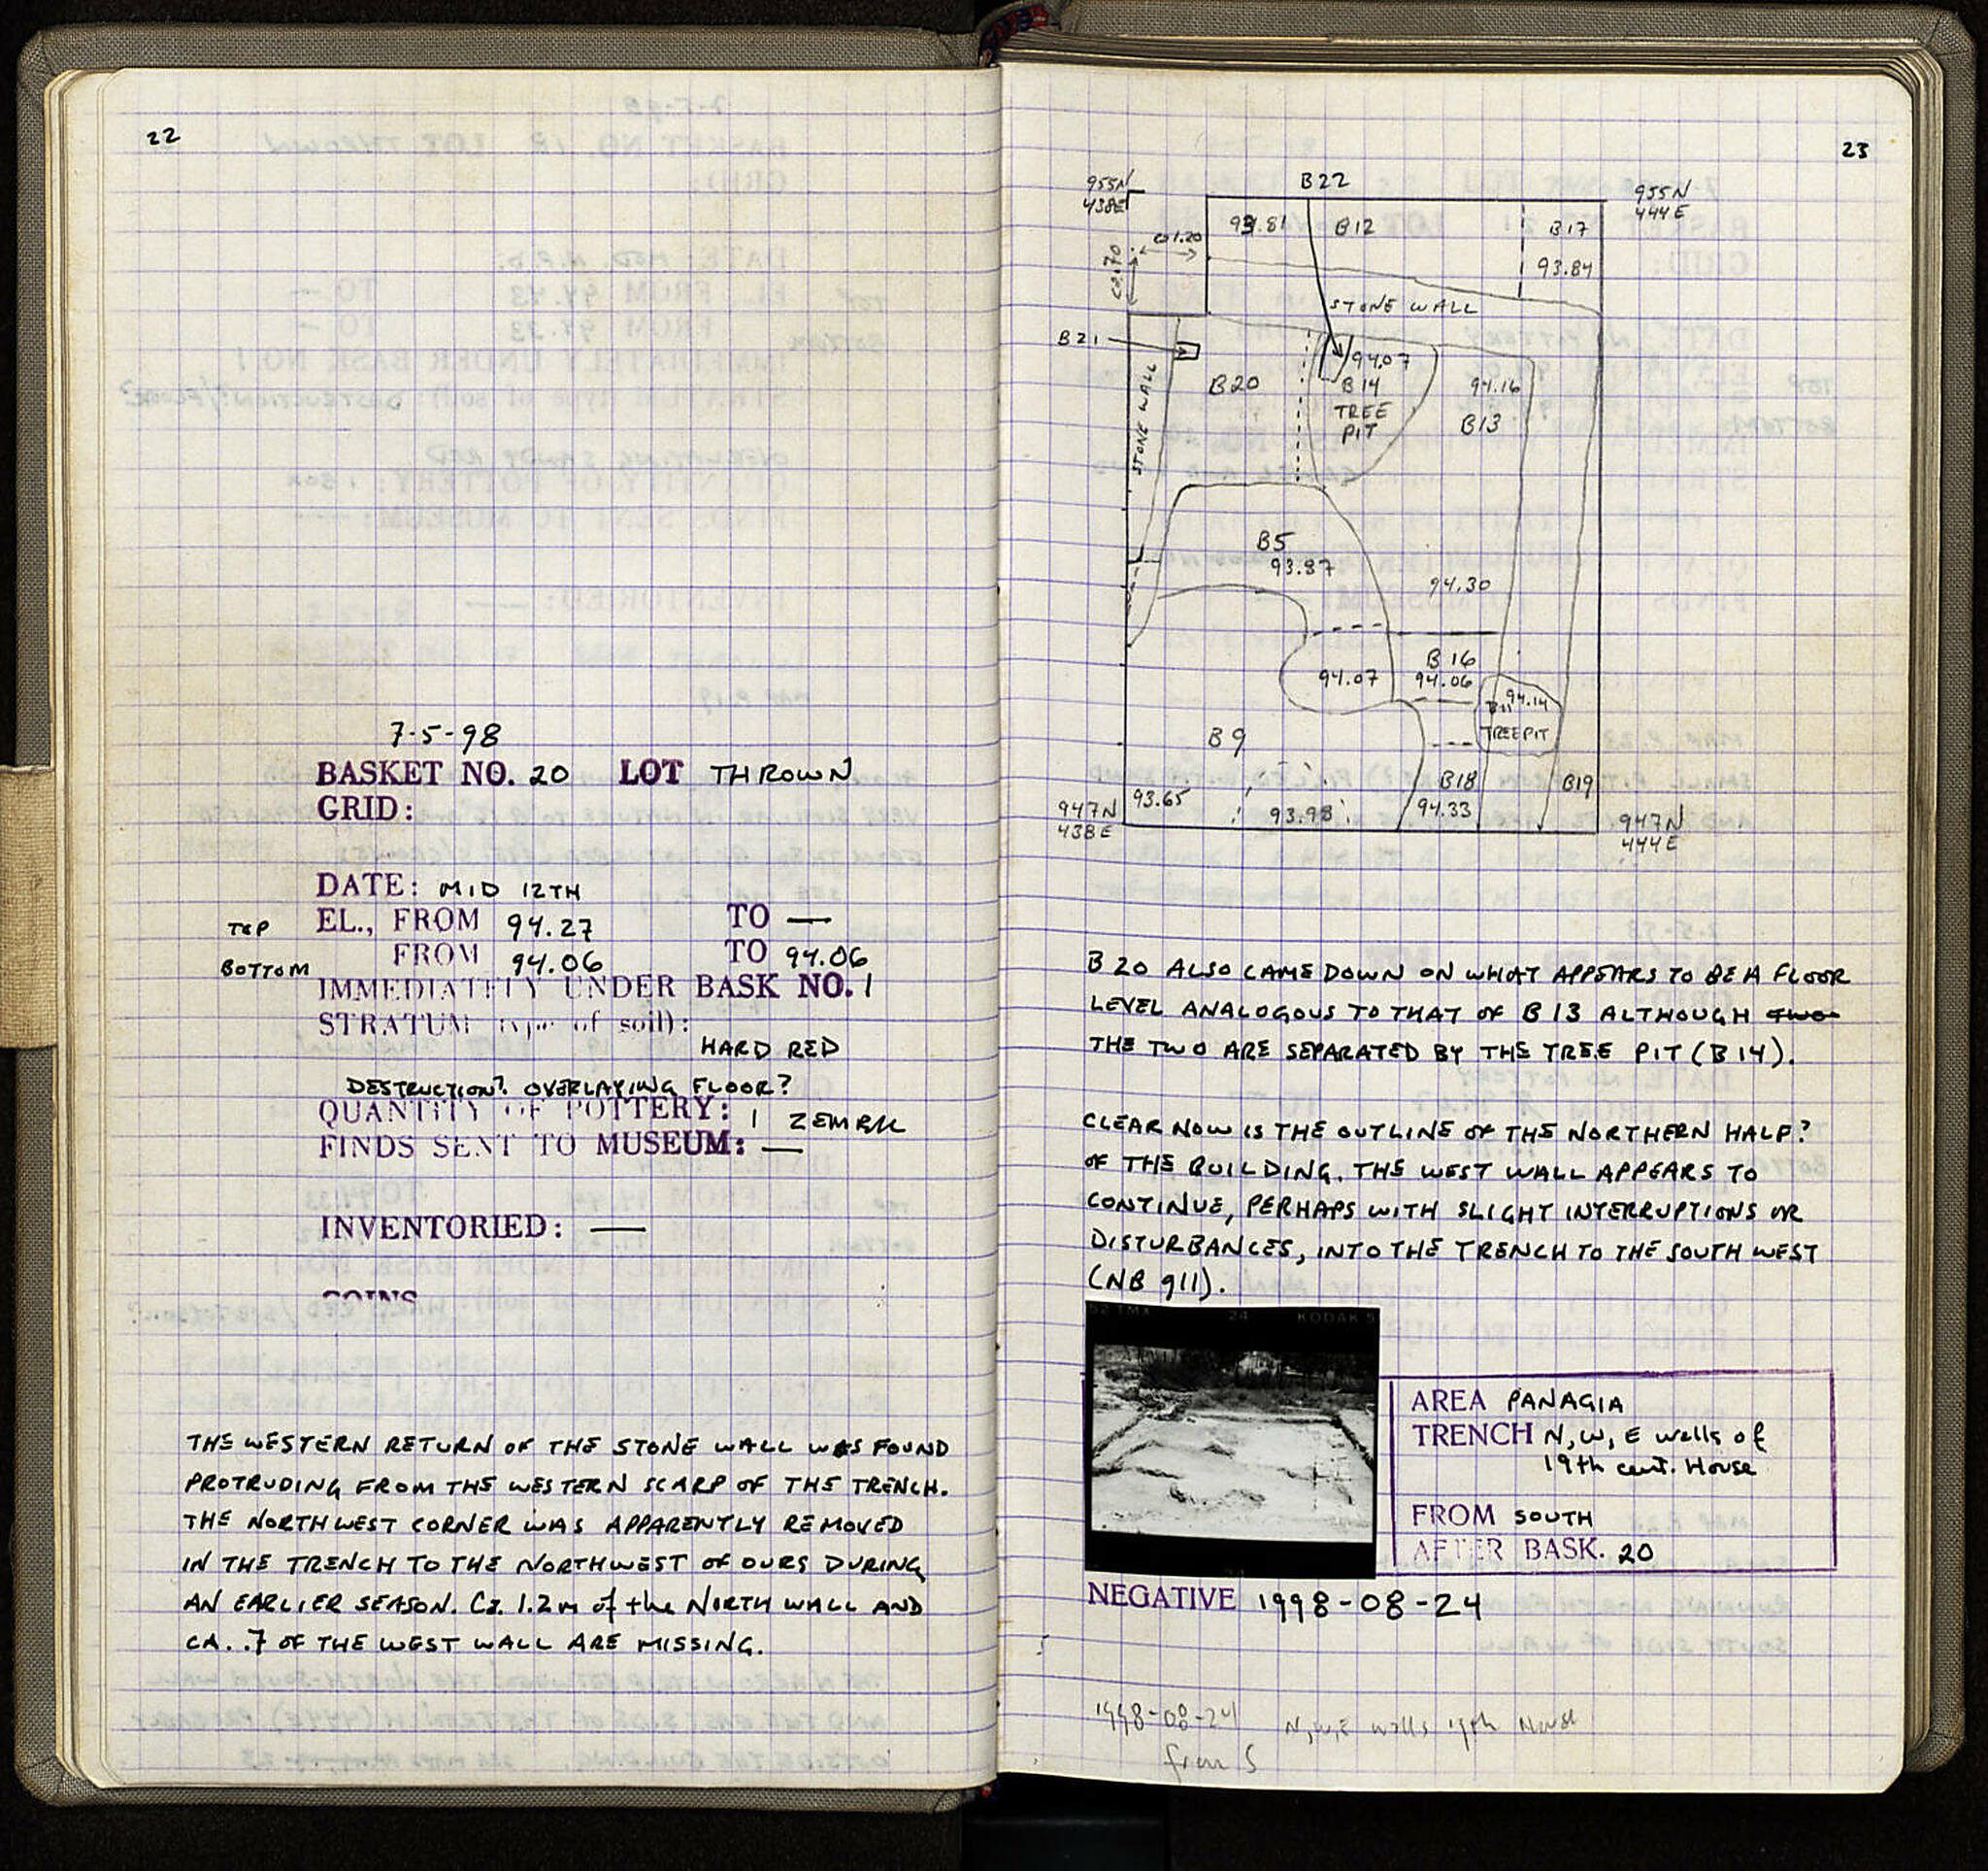 22
7-5-98
BASKET NO. 20 LOT THROWN
GRID:
DATE: MID 12TH
TOP EL., FROM 94.27 TO —
BOTTOM FROM 94.06 TO 94.06
IMMEDIATELY UNDER BASK NO. 1
STRATUM (type of soil):
HARD RED
DESTRUCTION? OVERLAYING FLOOR?
QUANTITY OF POTTERY: 1 ZEMBIL
FINDS SENT TO MUSEUM: —
INVENTORIED: —
COINS
THE WESTERN RETURN OF THE STONE WALL WAS FOUND
PROTRUDING FROM THE WESTERN SCARP OF THE TRENCH.
THE NORTHWEST CORNER WAS APPARENTLY REMOVED
IN THE TRENCH TO THE NORTHWEST OF OURS DURING
AN EARLIER SEASON. Ca. 1.2m of the NORTH WALL AND
CA. .7 OF THE WEST WALL ARE MISSING.
23
955N
438E
B22
955N
444E
93.81 B12 B17
93.84
ca 1.20
ca .70
STONE WALL
B21
STONE WALL
B20
94.07
B14
TREE
PIT
94.16
B13
B5
93.87
94.30
94.07
B16
94.06
B11 94.14
TREE PIT
B9
B18
94.33
B19
93.65
93.98
947N
438E
947N
444E
B20 ALSO CAME DOWN ON WHAT APPEARS TO BE A FLOOR
LEVEL ANALOGOUS TO THAT OF B13 ALTHOUGH TWO
THE TWO ARE SEPARATED BY THE TREE PIT (B14).
CLEAR NOW IS THE OUTLINE OF THE NORTHERN HALF?
OF THE BUILDING. THE WEST WALL APPEARS TO
CONTINUE, PERHAPS WITH SLIGHT INTERRUPTIONS OR
DISTURBANCES, INTO THE TRENCH TO THE SOUTH WEST
(NB 911).
52 TMX 24 KODAK 5
AREA PANAGIA
TRENCH N, W, E walls of
19th cent. House
FROM SOUTH
AFTER BASK. 20
NEGATIVE 1998-08-24
1998-08-24 N, W, E walls 19th House
from S